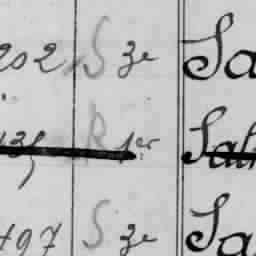 202 S 3e Sa
135 R 1er Sal
497 S 3e Sa